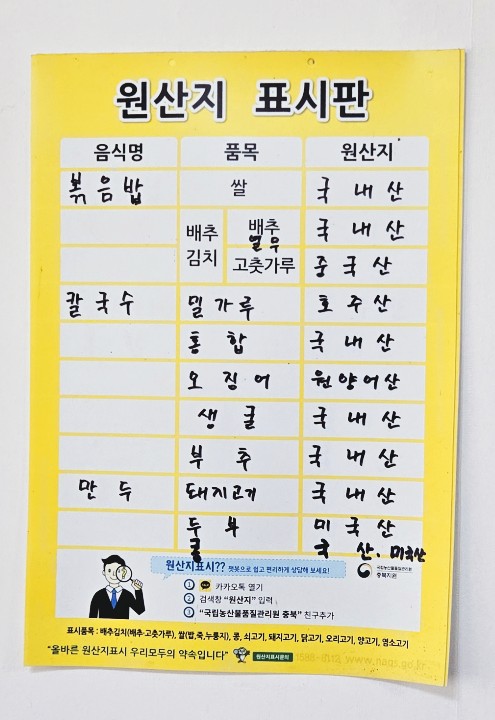 원산지 표시판
음식명 품목 원산지
볶음밥 쌀 국내산
배추김치 배추 열무 국내산
고춧가루 중국산
칼국수 밀가루 호주산
홍합 국내산
오징어 원양어산
생굴 국내산
부추 국내산
만두 돼지고기 국내산
두부 미국산
콩 국산. 미국산
원산지표시?? 챗봇으로 쉽고 편리하게 상담해 보세요!
국립농산물품질관리원
충북지원
1 카카오톡 열기
2 검색창 "원산지" 입력
3 "국립농산물품질관리원 충북" 친구추가
표시품목 : 배추김치(배추·고춧가루), 쌀(밥,죽,누룽지), 콩, 쇠고기, 돼지고기, 닭고기, 오리고기, 양고기, 염소고기
"올바른 원산지표시 우리모두의 약속입니다" 원산지표시문의 www.naqs.go.kr